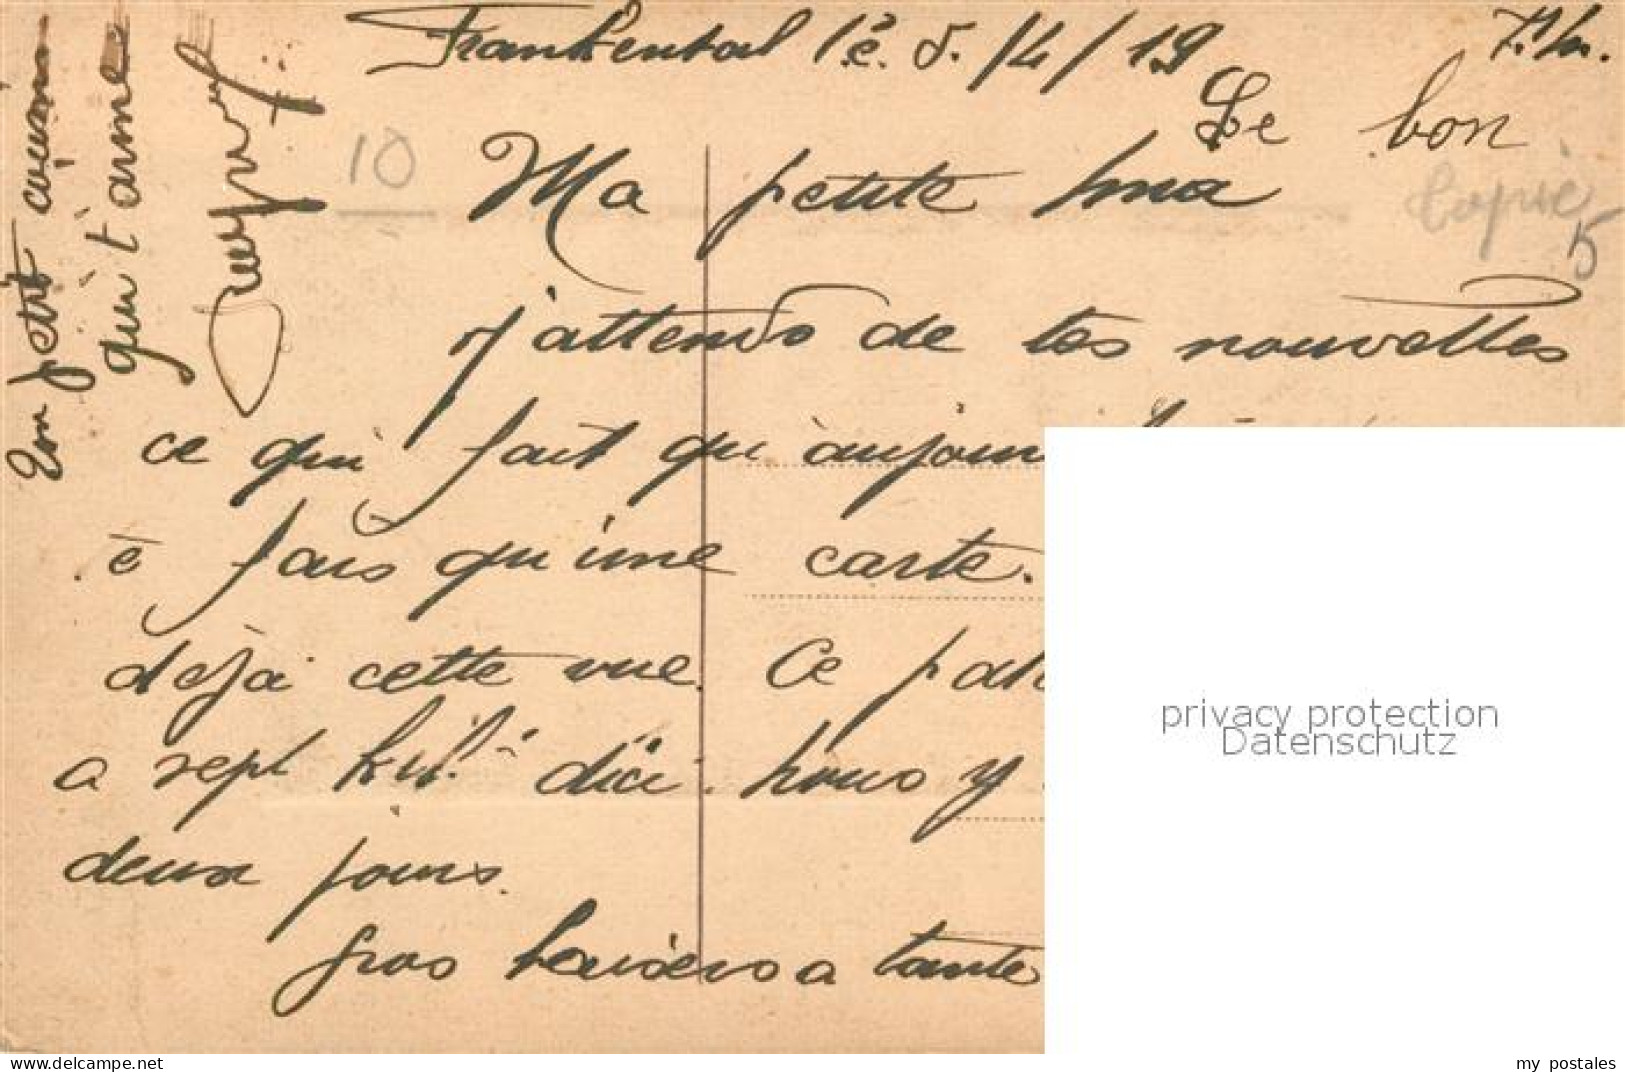 Frankental le 5./4/19
Le bon
10
Ma petite
Copie
15
j'attends de tes nouvelles
ce qui fait qu'aujour
fais qu'une carte.
déja cette vue. Ce pat
a sept d'ici. nous y
deux jours.
Gros baisers a tante
Ton petit cousin
qui t'aime
privacy protection
Datenschutz
my postales